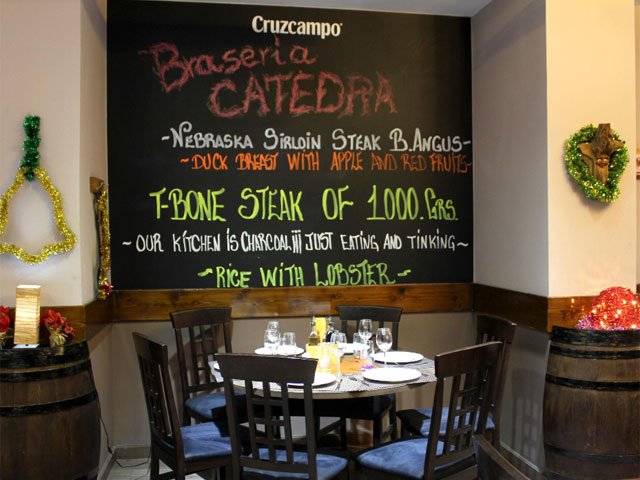 Cruzcampo
Braseria
CATEDRA
~NEBRASKA SIRLOIN STEAK B.ANGUS~
~DUCK BREAST WITH APPLE AND RED FRUITS~
T-BONE STEAK OF 1000.GRS.
~OUR KITCHEN IS CHARCOAL¡¡¡ JUST EATING AND TINKING~
~RICE WITH LOBSTER~